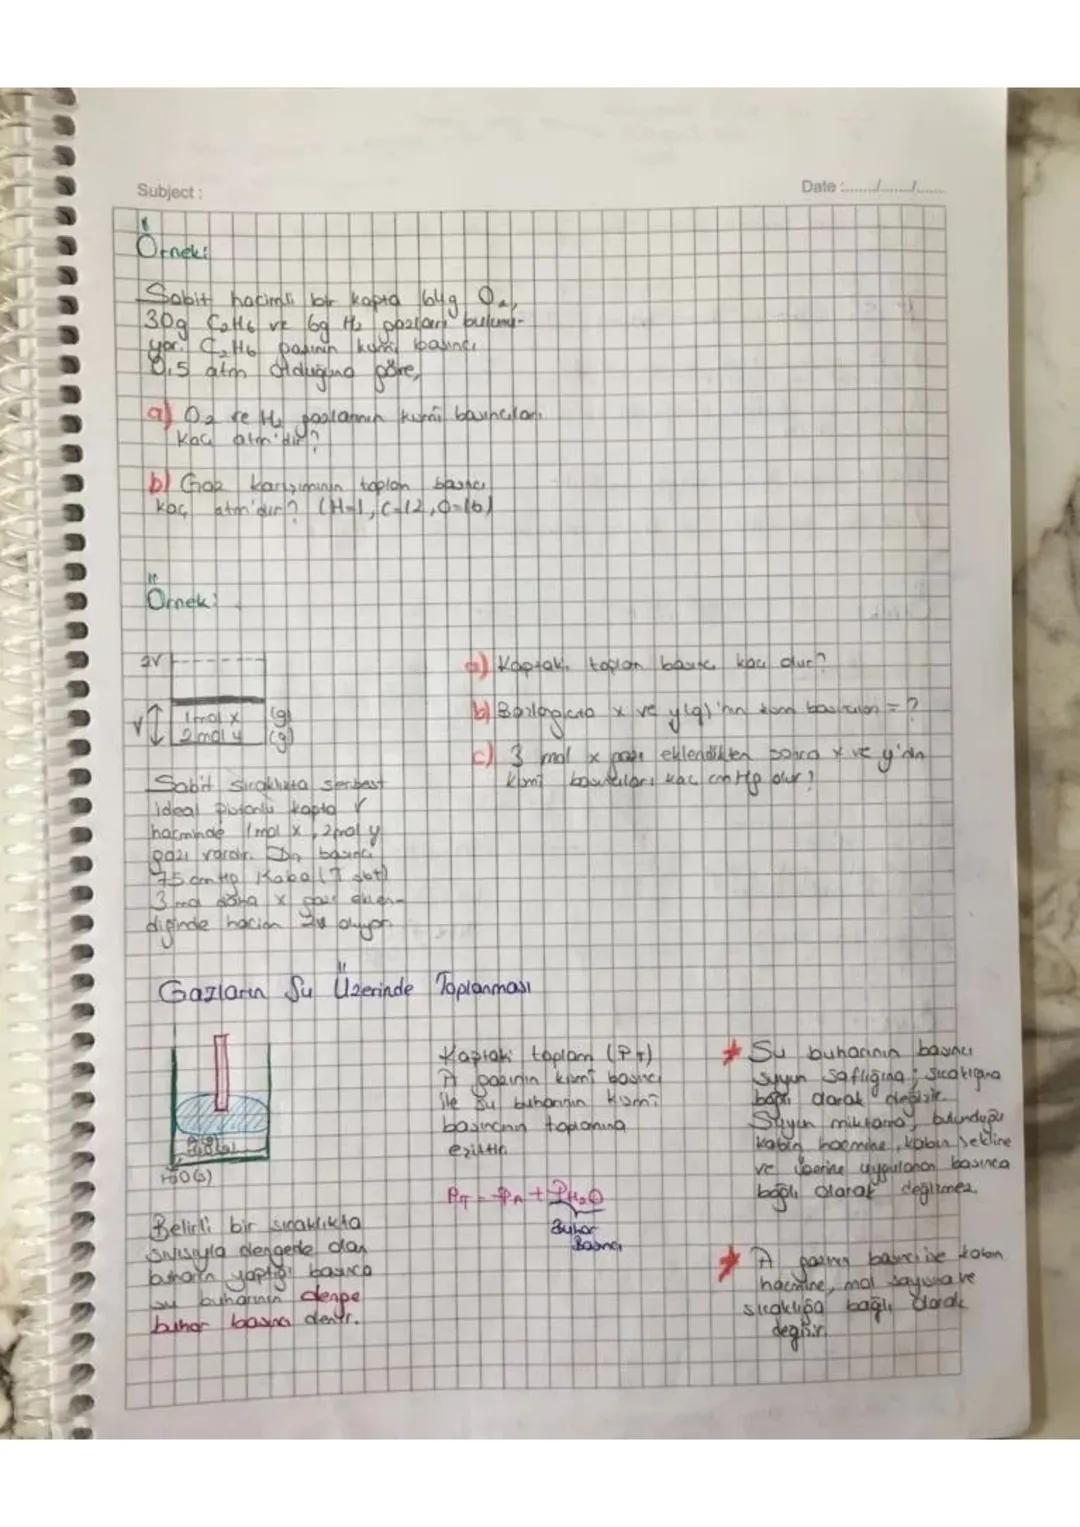 Subject :
Date :......../......../........
Örnek:
Sabit hacimli bir kapta 64g O₂,
30g C₂H₆ ve 6g H₂ gazları bulunu-
yor. C₂H₆ gazının kısmi basıncı
0.5 atm olduğuna göre,
a) O₂ ve H₂ gazlarının kısmi basınçları
kaç atm'dir?
b) Gaz karışımının toplam basıncı
kaç atm'dir? (H=1, C=12, O=16)
Örnek:
2V
V
1 mol x (g)
2 mol y (g)
Sabit sıcaklıkta serbest
ideal pistonlu kapta V
hacminde 1 mol x, 2 mol y
gazı vardır. Dış basınç
75 cmHg Kaba (T sbt)
3 mol daha x gazı eklen-
diğinde hacim 2v oluyor.
a) Kaptaki toplam basınç kaç olur?
b) Başlangıçta x ve y(g)'nın kısmi basınçları = ?
c) 3 mol x gazı eklendikten sonra x ve y'nin
kısmi basınçları kaç cmHg olur?
Gazların Su Üzerinde Toplanması
Belirli bir sıcaklıkta
sıvısıyla dengede olan
buharın yaptığı basınca
su buharının denge
buhar basıncı denir.
Kaptaki toplam (PT)
A gazının kısmi basıncı
ile su buharının kısmi
basıncının toplamına
eşittir.
PT = PA + PH₂O
Buhar
Basıncı
* Su buharının basıncı
suyun saflığına, sıcaklığına
bağlı olarak değişir.
Suyun miktarına, bulunduğu
kabın hacmine, kabın şekline
ve üzerine uygulanan basınca
bağlı olarak değişmez.
* A gazının basıncı ise kabın
hacmine, mol sayısına ve
sıcaklığa bağlı olarak
değişir.